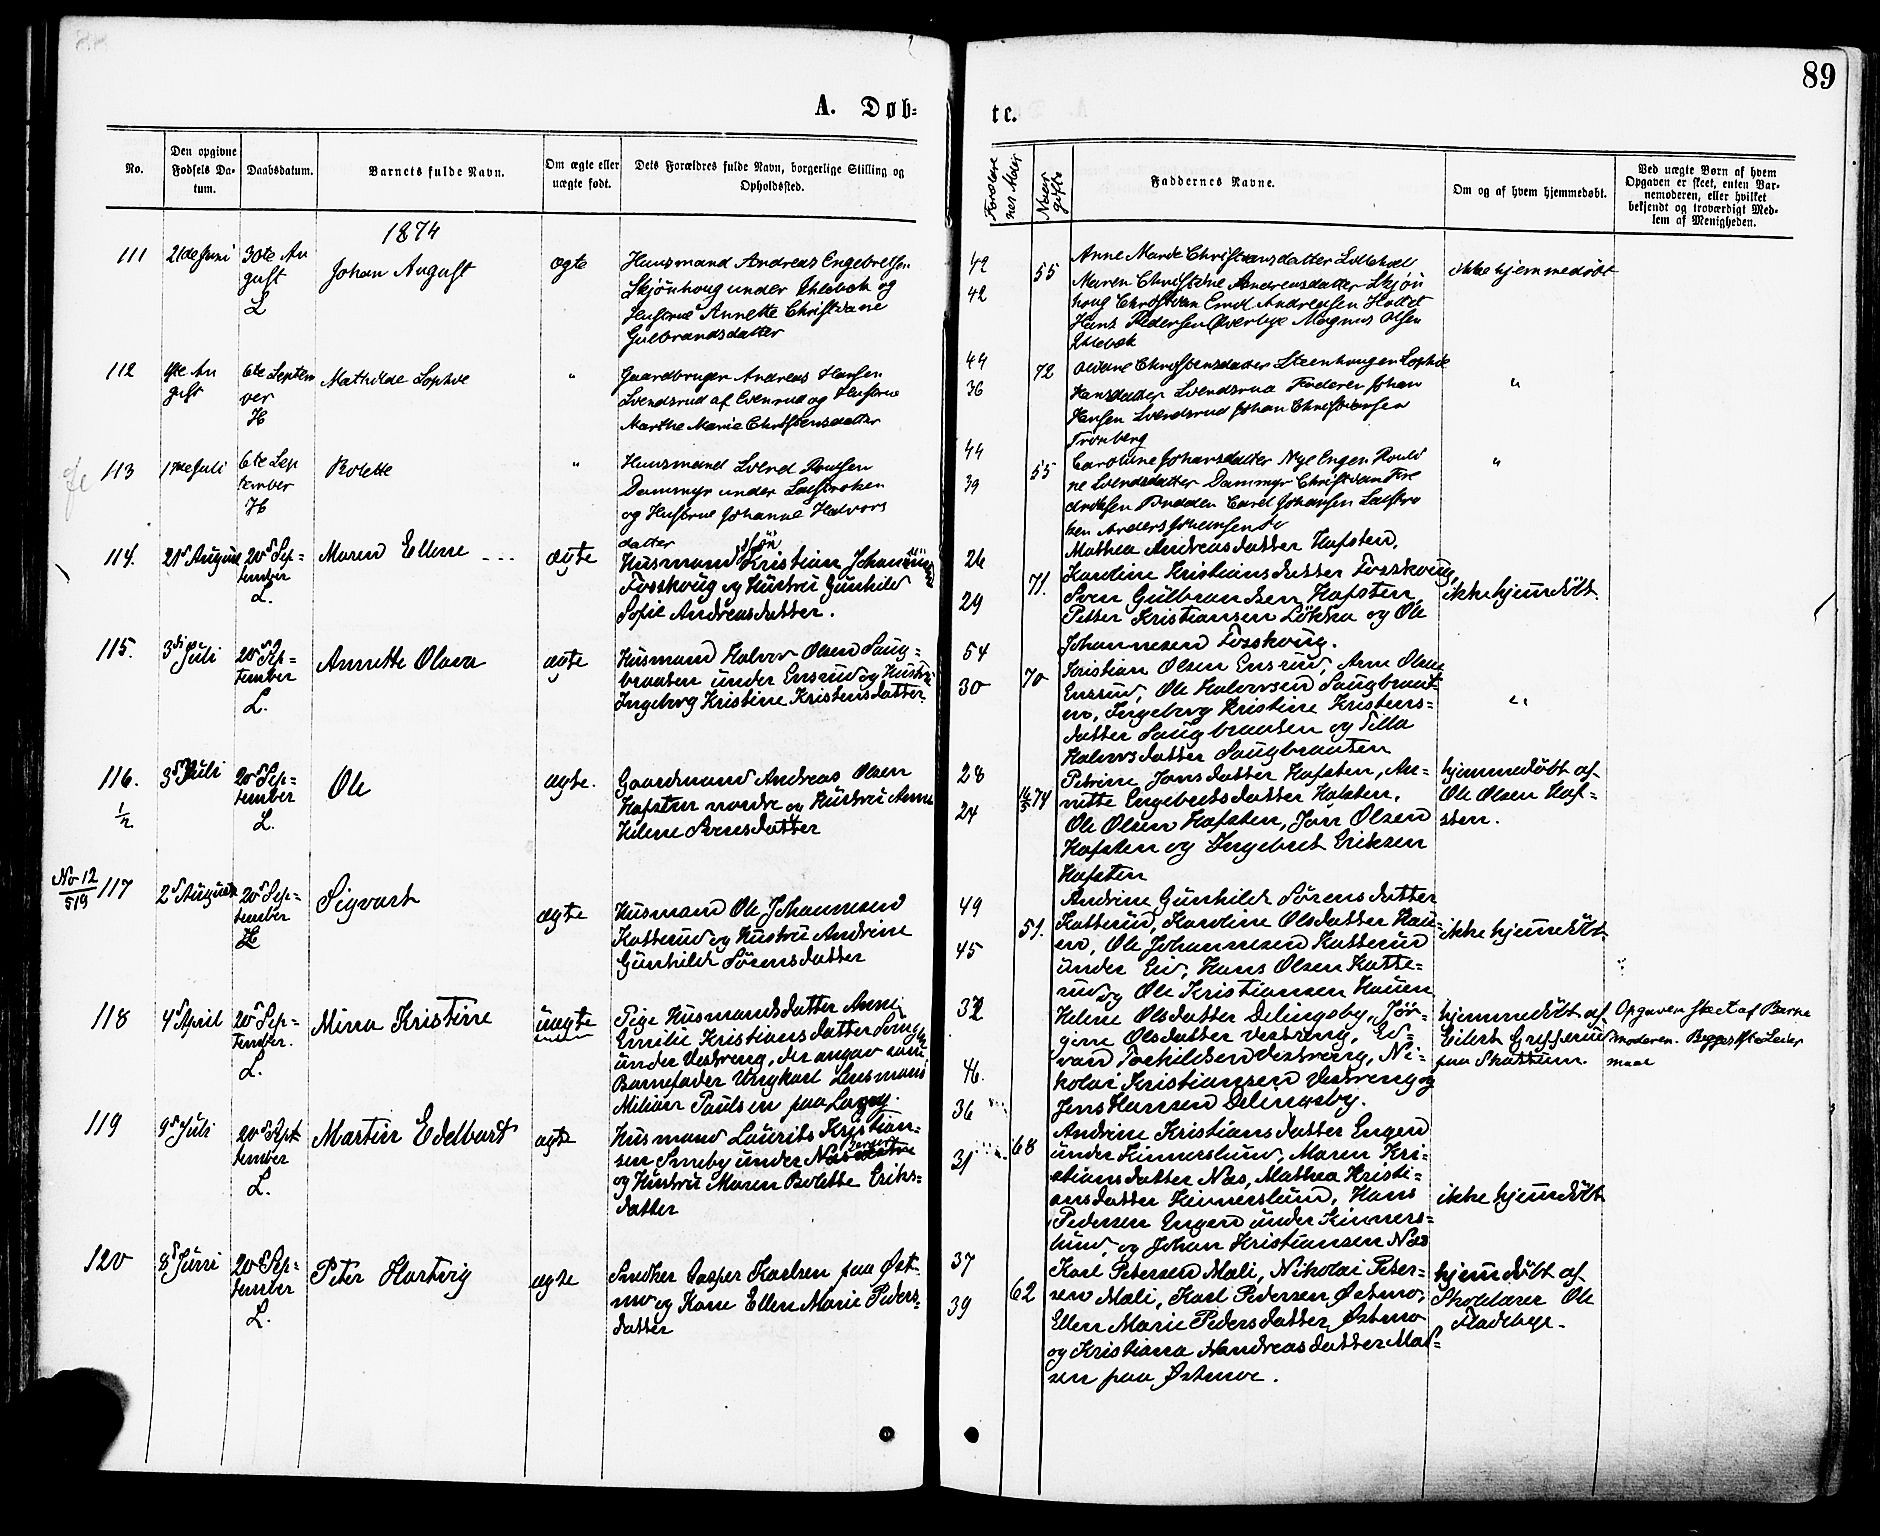 88
89
A. Døb-
te.
No.
Den opgivne
Fødsels Da-
tum.
Daabsdatum.
Barnets fulde Navn.
Om ægte eller
uægte født.
Dets Forældres fulde Navn, borgerlige Stilling og
Opholdssted.
Faddernes Navne.
Om og af hvem hjemmedøbt.
Ved uægte Børn af hvem
Opgaven er skeet, enten Bar-
nemoderen, eller hvilket
bekjendt og troværdigt Med-
lem af Menigheden.
1874
111
21de Juni
30te Au
gust
L
Johan August
ægte
Huusmand Andreas Engebretsen
Skjønhoug under
og
Hustrue Annette Christiane
Gulbrandsdatter
42
42
55
Anne Marie Christiansdatter
Maren Christine Andreasdatter Skjøn
houg Christian Emil Andreasen
Hans Pedersen Øverbye Magnus Olsen
ikke hjemmedøbt
112
Au
gust
6te Septem
ber
H
Mathilde Sophie
"
Gaardbruger Andreas Hansen
Svendsrud af
og Hustrue
Marthe Marie Christensdatter
44
36
72
Oliane Christensdatter Steenhougen Sophie
Hansdatter Svendsrud Johan
Hansen Svendsrud Johan Christiansen
Tronberg
"
113
17de Juli
6te Sep
tember
H
Bolette
"
Huusmand Svend Poulsen
Dammyr under
og Hustrue Johanne Halvors
datter
44
39
55
Caroline Johansdatter Nye Engen Pouli
ne Svendsdatter Dammyr Christian Fre
driksen Carel Johansen
ken Anders Johansen
"
114.
21de August
20de Sep-
tember
L.
Maren Elline
ægte
Husmand Kristian Johannesen
Fosskoug og Hustru Gunhild
Sofie Andreasdatter.
26
29
71.
Mathea Andreasdatter Hafsten,
Karoline Kristiansdatter Fosskoug,
Sven Gulbrandsen Hafsten,
Petter Kristiansen Løkka og Ole
Johannesen Fosskoug.
ikke hjemdøbt.
115.
3die Juli
20de Sep-
tember
L.
Annette Olava
ægte
Husmand Halvor Olsen Saug-
braaten under Ensrud og Hustru
Ingeborg Kristine Kristensdatter
54
30
70
Kristian Olsen Ensrud, Arne Olsen
Ensrud, Ole Halvorsen Saugbraat-
en, Ingeborg Kristine Kristens-
datter Saugbraaten og Tilla
Halvorsdatter Saugbraaten
"
116.
3de Juli
20de Sep-
tember
L.
Ole
ægte.
Gaardmand Andreas Olsen
Hafsten nordre og Hustru Anne
Helene
28
24
74
Petrine Jansdatter Hafsten, An-
nette Engebretsdatter Hafsten,
Ole Olsen Hafsten, Jan Olsen
Hafsten og Ingebret Eriksen
Hafsten
hjemmedøbt af
Ole Olsen Haf-
sten.
No 12
519
117
2de August
20de Sep-
tember
Sigvart
ægte
Husmand Ole Johannesen
Katterud og Hustru Andrine
Gunhilde Sørensdatter
49
45
51.
Andrine Gunhilde Sørensdatter
Katterud, Karoline Olsdatter Hau-
en, Ole Johannesen Katterud
under Eid, Hans Olsen Katte-
rud og Ole Kristiansen Hauen
ikke hjemdøbt.
118
4de April
20de Sep-
tember.
L.
Mina Kristine
uægte
Pige Husmandsdatter Anne
Emilie Kristiansdatter
under Vestreng, der angav som
Barnefader Ungkarl Husmand
Milian Paulsen paa
32
46.
Helene Olsdatter Delingsby, Jør-
gine Olsdatter Vestreng, Ed-
vard Torkildsen Vestreng, Ni-
kolai Kristiansen Vestreng og
Jens Hansen Delingsby.
hjemmedøbt af
Eilert
paa Skattum.
Opgaven skeet af Barne
moderen. Begges 1ste Leier
maal
119
9de Juli
20de Sept-
tember
L.
Martin Edelbart
ægte
Husmand Laurits Kristian-
sen Smeby under Næs
og Hustru Maren Bolette Eriks-
datter
36
31
68
Andrine Kristiansdatter Engen
under Kinnerslund, Maren Kri-
stiansdatter Næs, Mathea Kristi-
ansdatter Kinnerslund, Hans
Pedersen Engen under Kinners-
lund, og Johan Kristiansen Næs
ikke hjemdøbt
120
8de Juni
20de Sep-
tember
L.
Peter Hartvig
ægte
Snedker Casper Karlsen paa Øst-
mo og Kone Ellen Marie Peders-
datter
37
39
62
Karl Petersen Mæli, Nikolai Peter-
sen Mæli, Karl Pedersen Østmo,
Ellen Marie Pedersdatter Østmo
og Kristiana Andreasdatter Mad-
sen paa Østmoe.
hjemdøbt af
Skolelærer Ole
Fladebye.